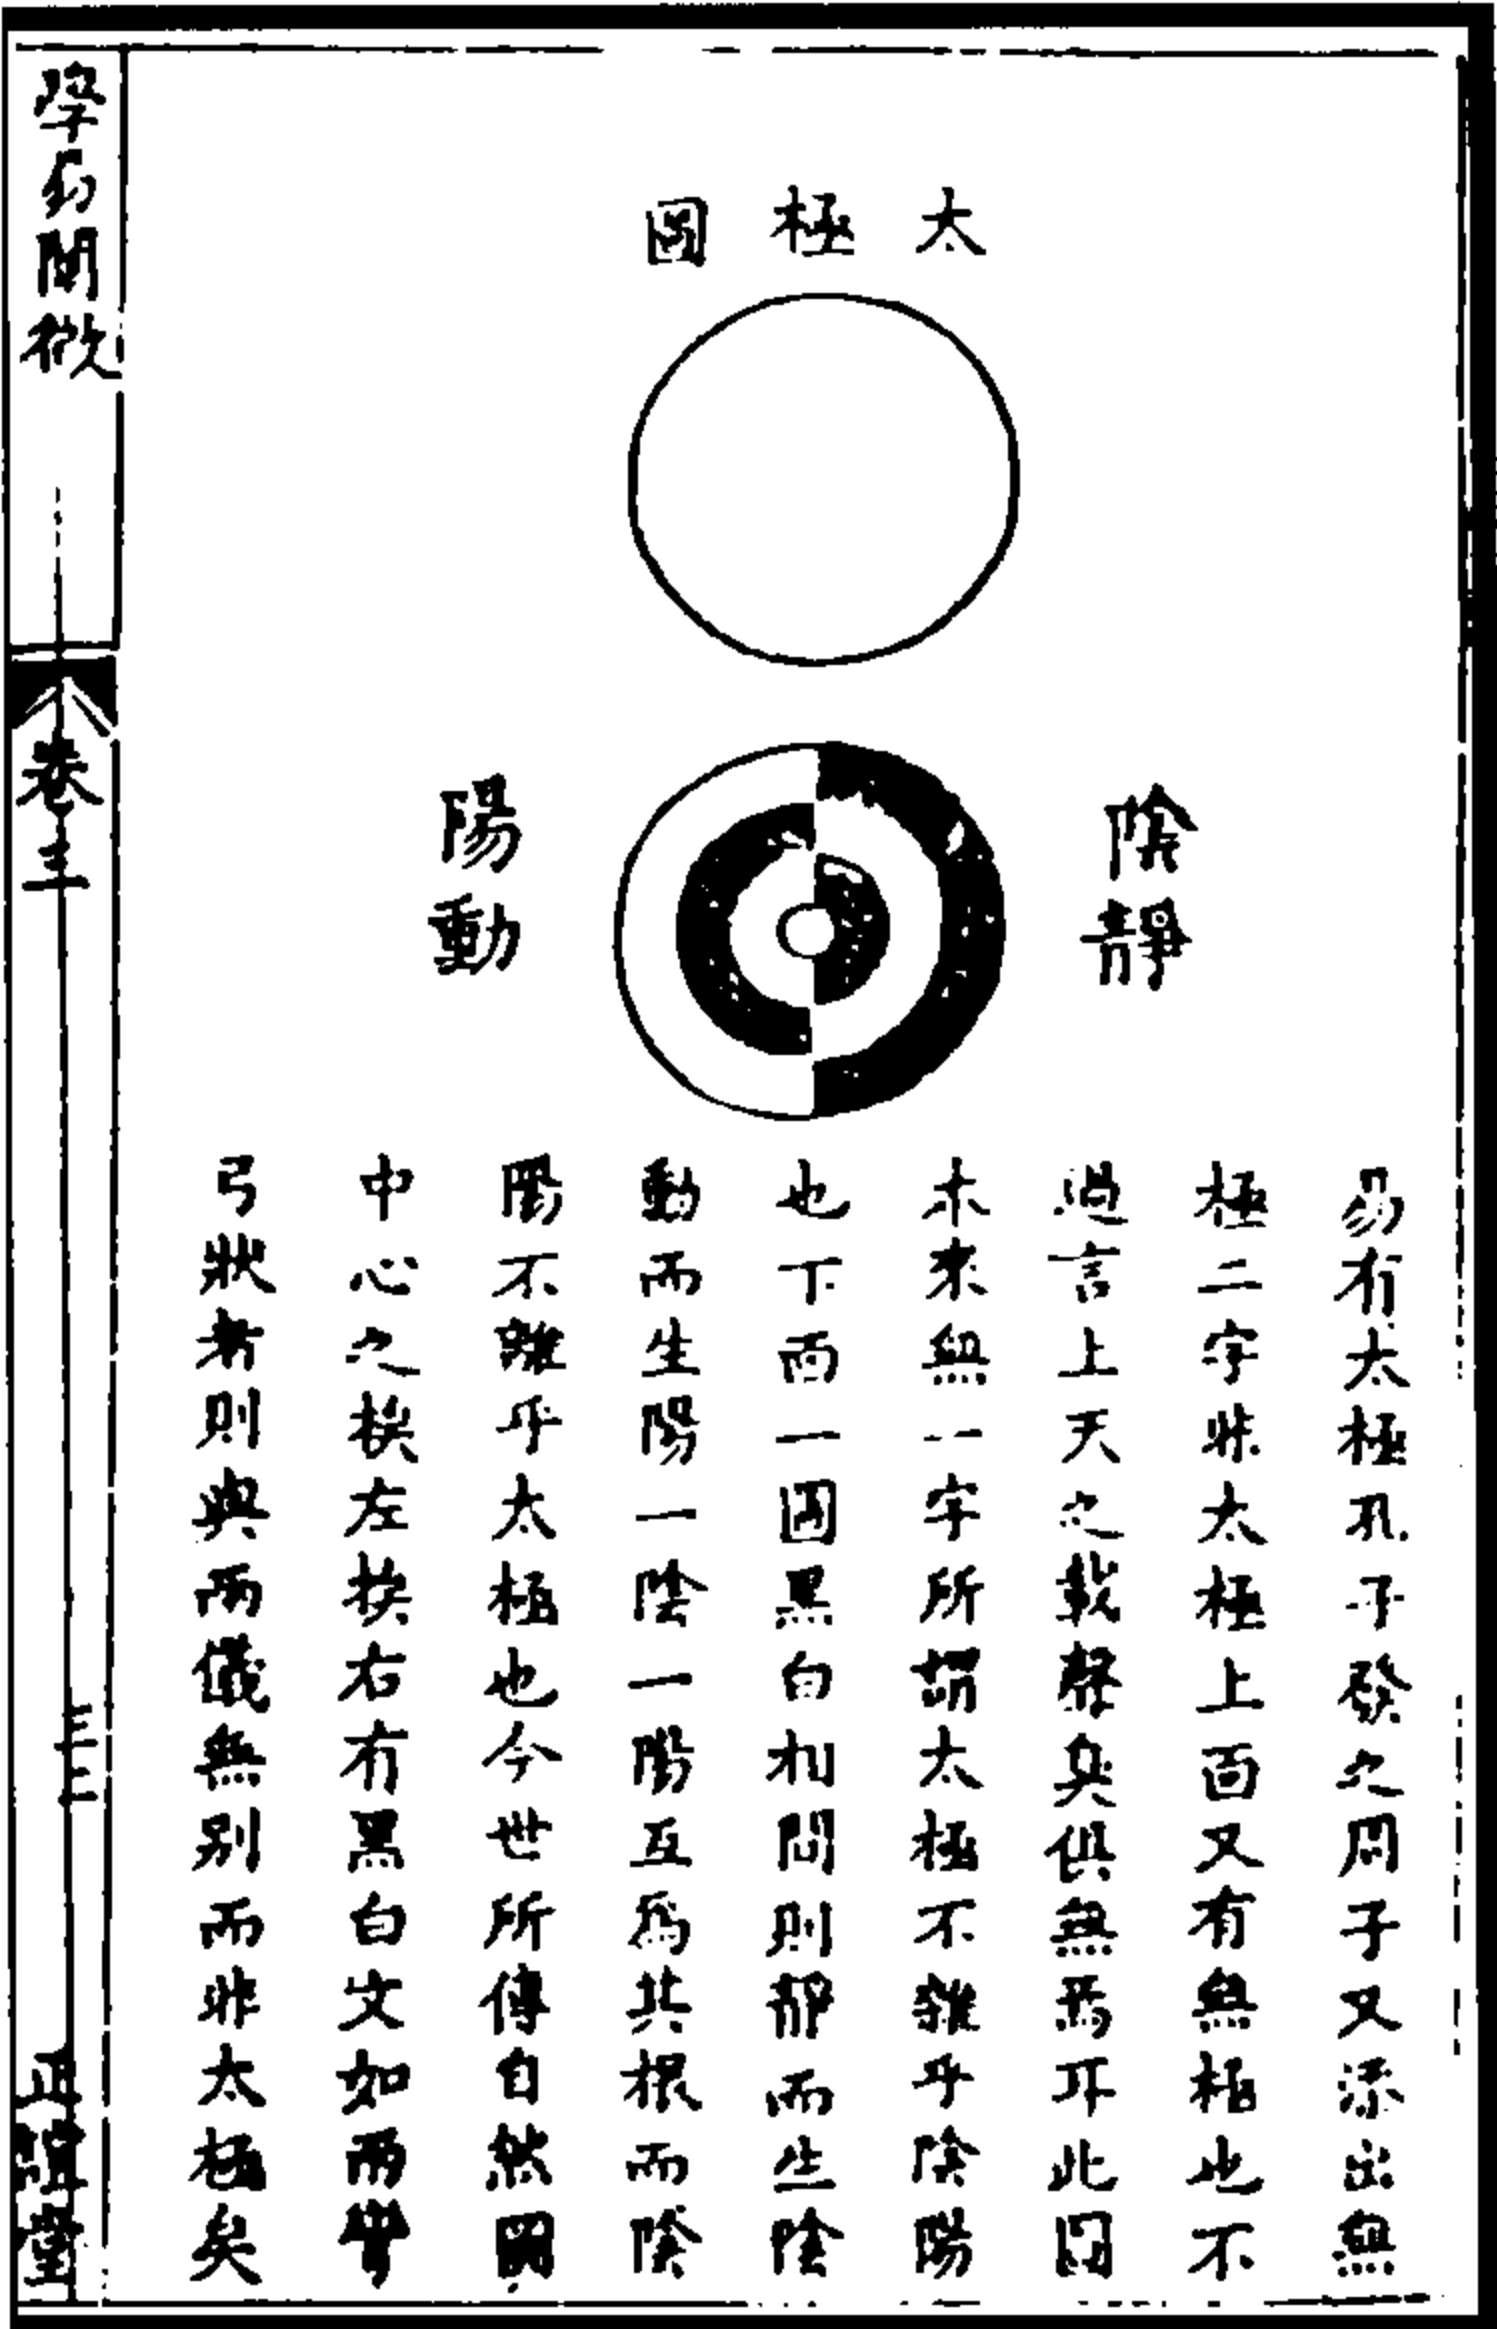 太極圖
陰靜
陽動
易有太極孔子發之周子又添出無
極二字非太極上面又有無極也不
過言上天之載聲臭俱無焉耳此圖
本來無一字所謂太極不雜乎陰陽
也下面一圖黑白相間則靜而生陰
動而生陽一陰一陽互為其根而陰
陽不離乎太極也今世所傳自然圖
中心之挨左挨右有黑白文如兩彎
弓狀者則與兩儀無別而非太極矣
學易闡微
卷三
三十二
正誼堂